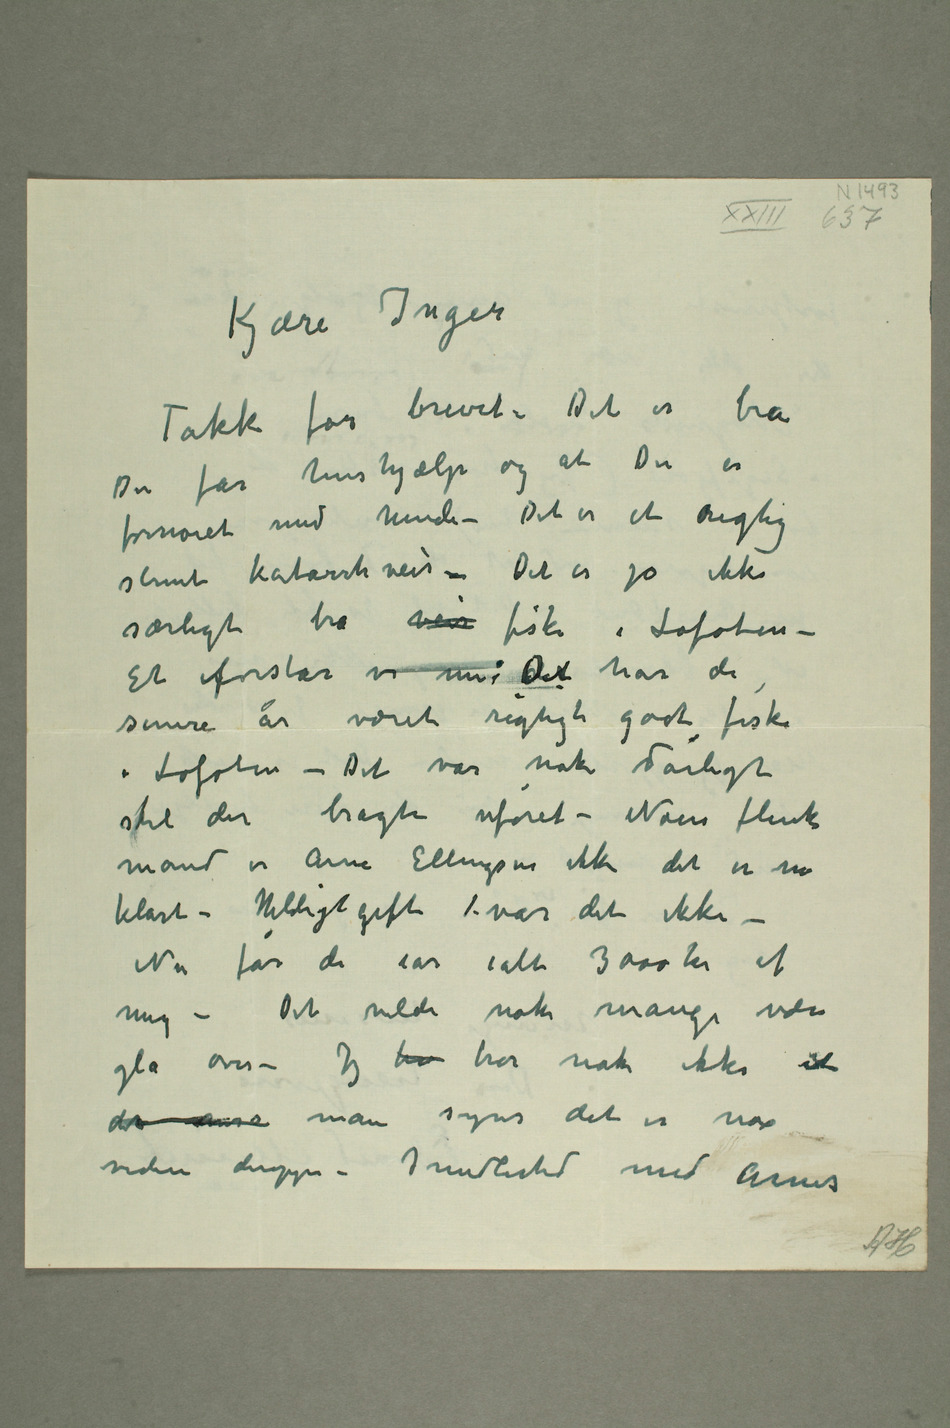 N 1493
XXIII 637
Kjære Inger
Takk for brevet – Det er bra
Du får hushjælp og at Du er
fornøiet med hende – Det er et rigtig
slemt katarrh veir – Det er jo ikke
særligt bra veir fiske i Lofoten –
Et forstår vi nu: Det har de
senere år været rigtigt godt fiske
i Lofoten – Det var nok dårligt
stel der bragte uføret – Noen flink
mand er Arne Ellingsen ikke det er nu
klart – Heldigt gift var det ikke –
Nu får de iår ialt 3000 kr af
mig – Det vilde nok mange være
gla over – Jeg tror nok ikke at
man synes det er nox
videre deroppe – Imidlertid med Arnes
AH